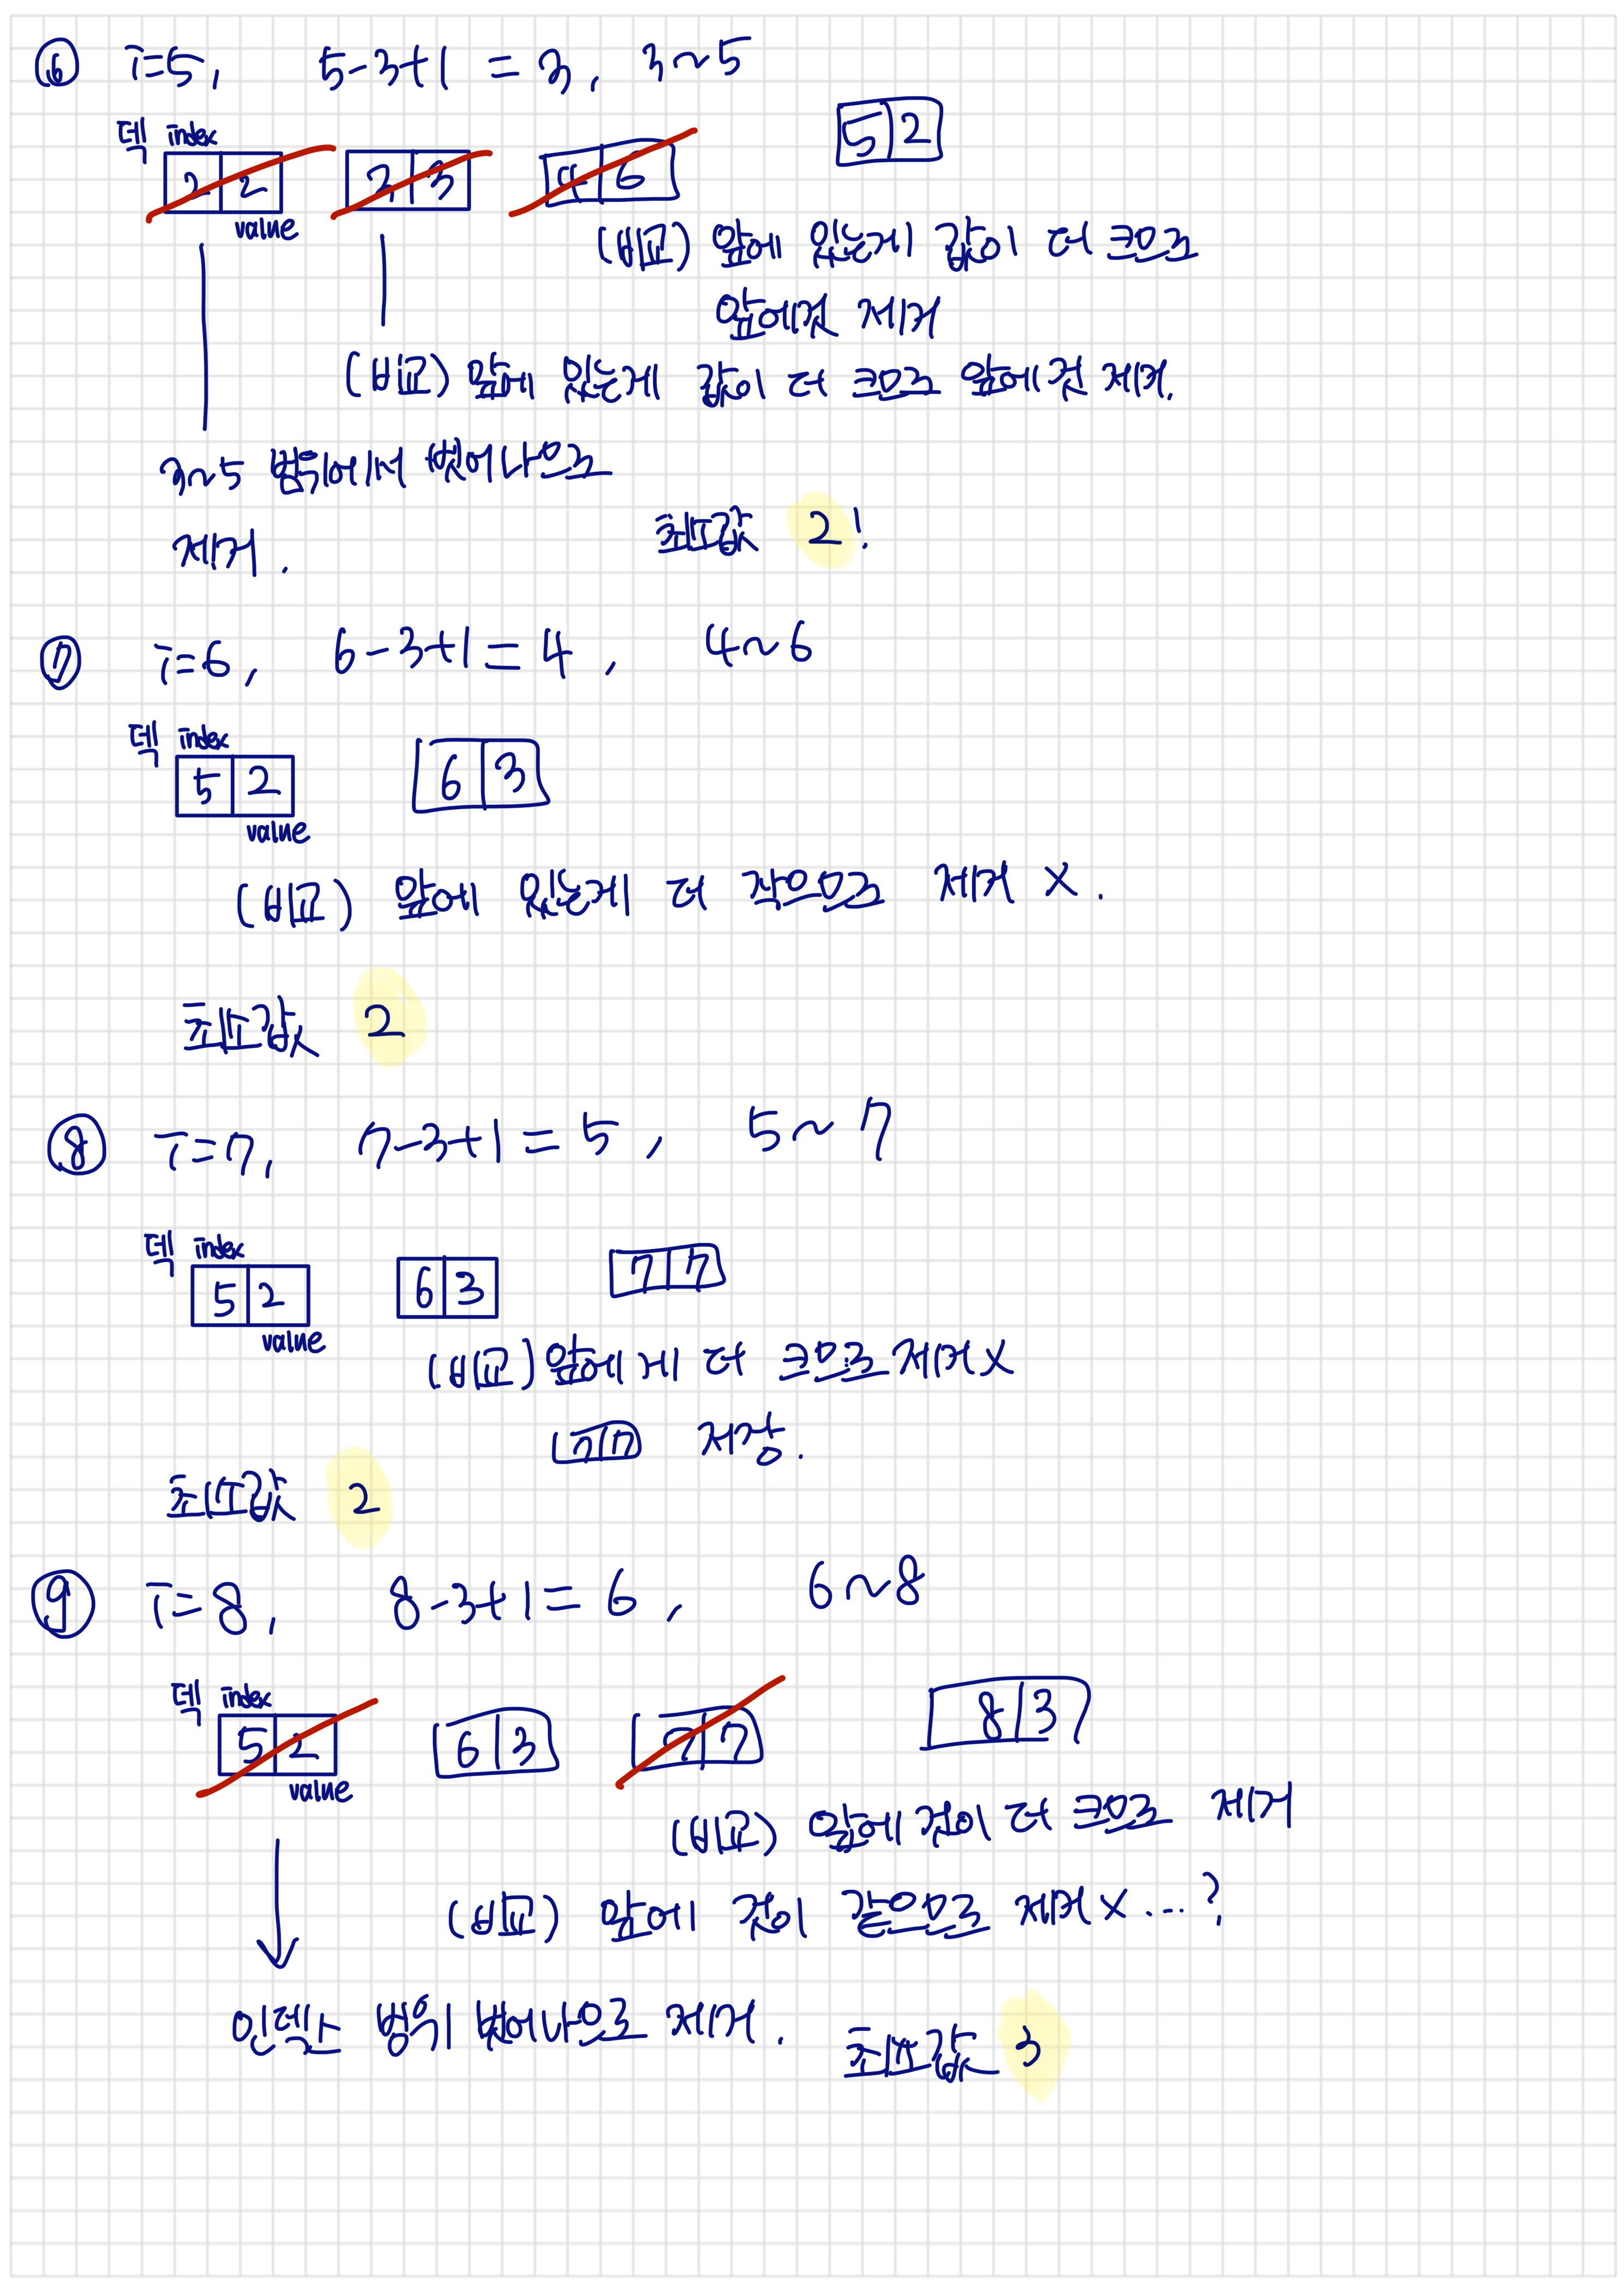 ⑥ i=5, 5-3+1 = 3, 3~5
덱 index
2 2 3 3 4 6 5 2
value
(비교) 앞에 있는게 값이 더 크므로
앞에것 제거
(비교) 앞에 있는게 값이 더 크므로 앞에것 제거.
3~5 범위에서 벗어나므로
제거.
최소값 2!
⑦ i=6, 6-3+1 = 4, 4~6
덱 index
5 2 6 3
value
(비교) 앞에 있는게 더 작으므로 제거 X.
최소값 2
⑧ i=7, 7-3+1 = 5, 5~7
덱 index
5 2 6 3 7 7
value
(비교) 앞에게 더 크므로 제거 X
7 7 저장.
최소값 2
⑨ i=8, 8-3+1 = 6, 6~8
덱 index
5 2 6 3 7 7 8 3
value
(비교) 앞에 것이 더 크므로 제거
(비교) 앞에 것이 같으므로 제거 X....?
인덱스 범위 벗어나므로 제거.
최소값 3